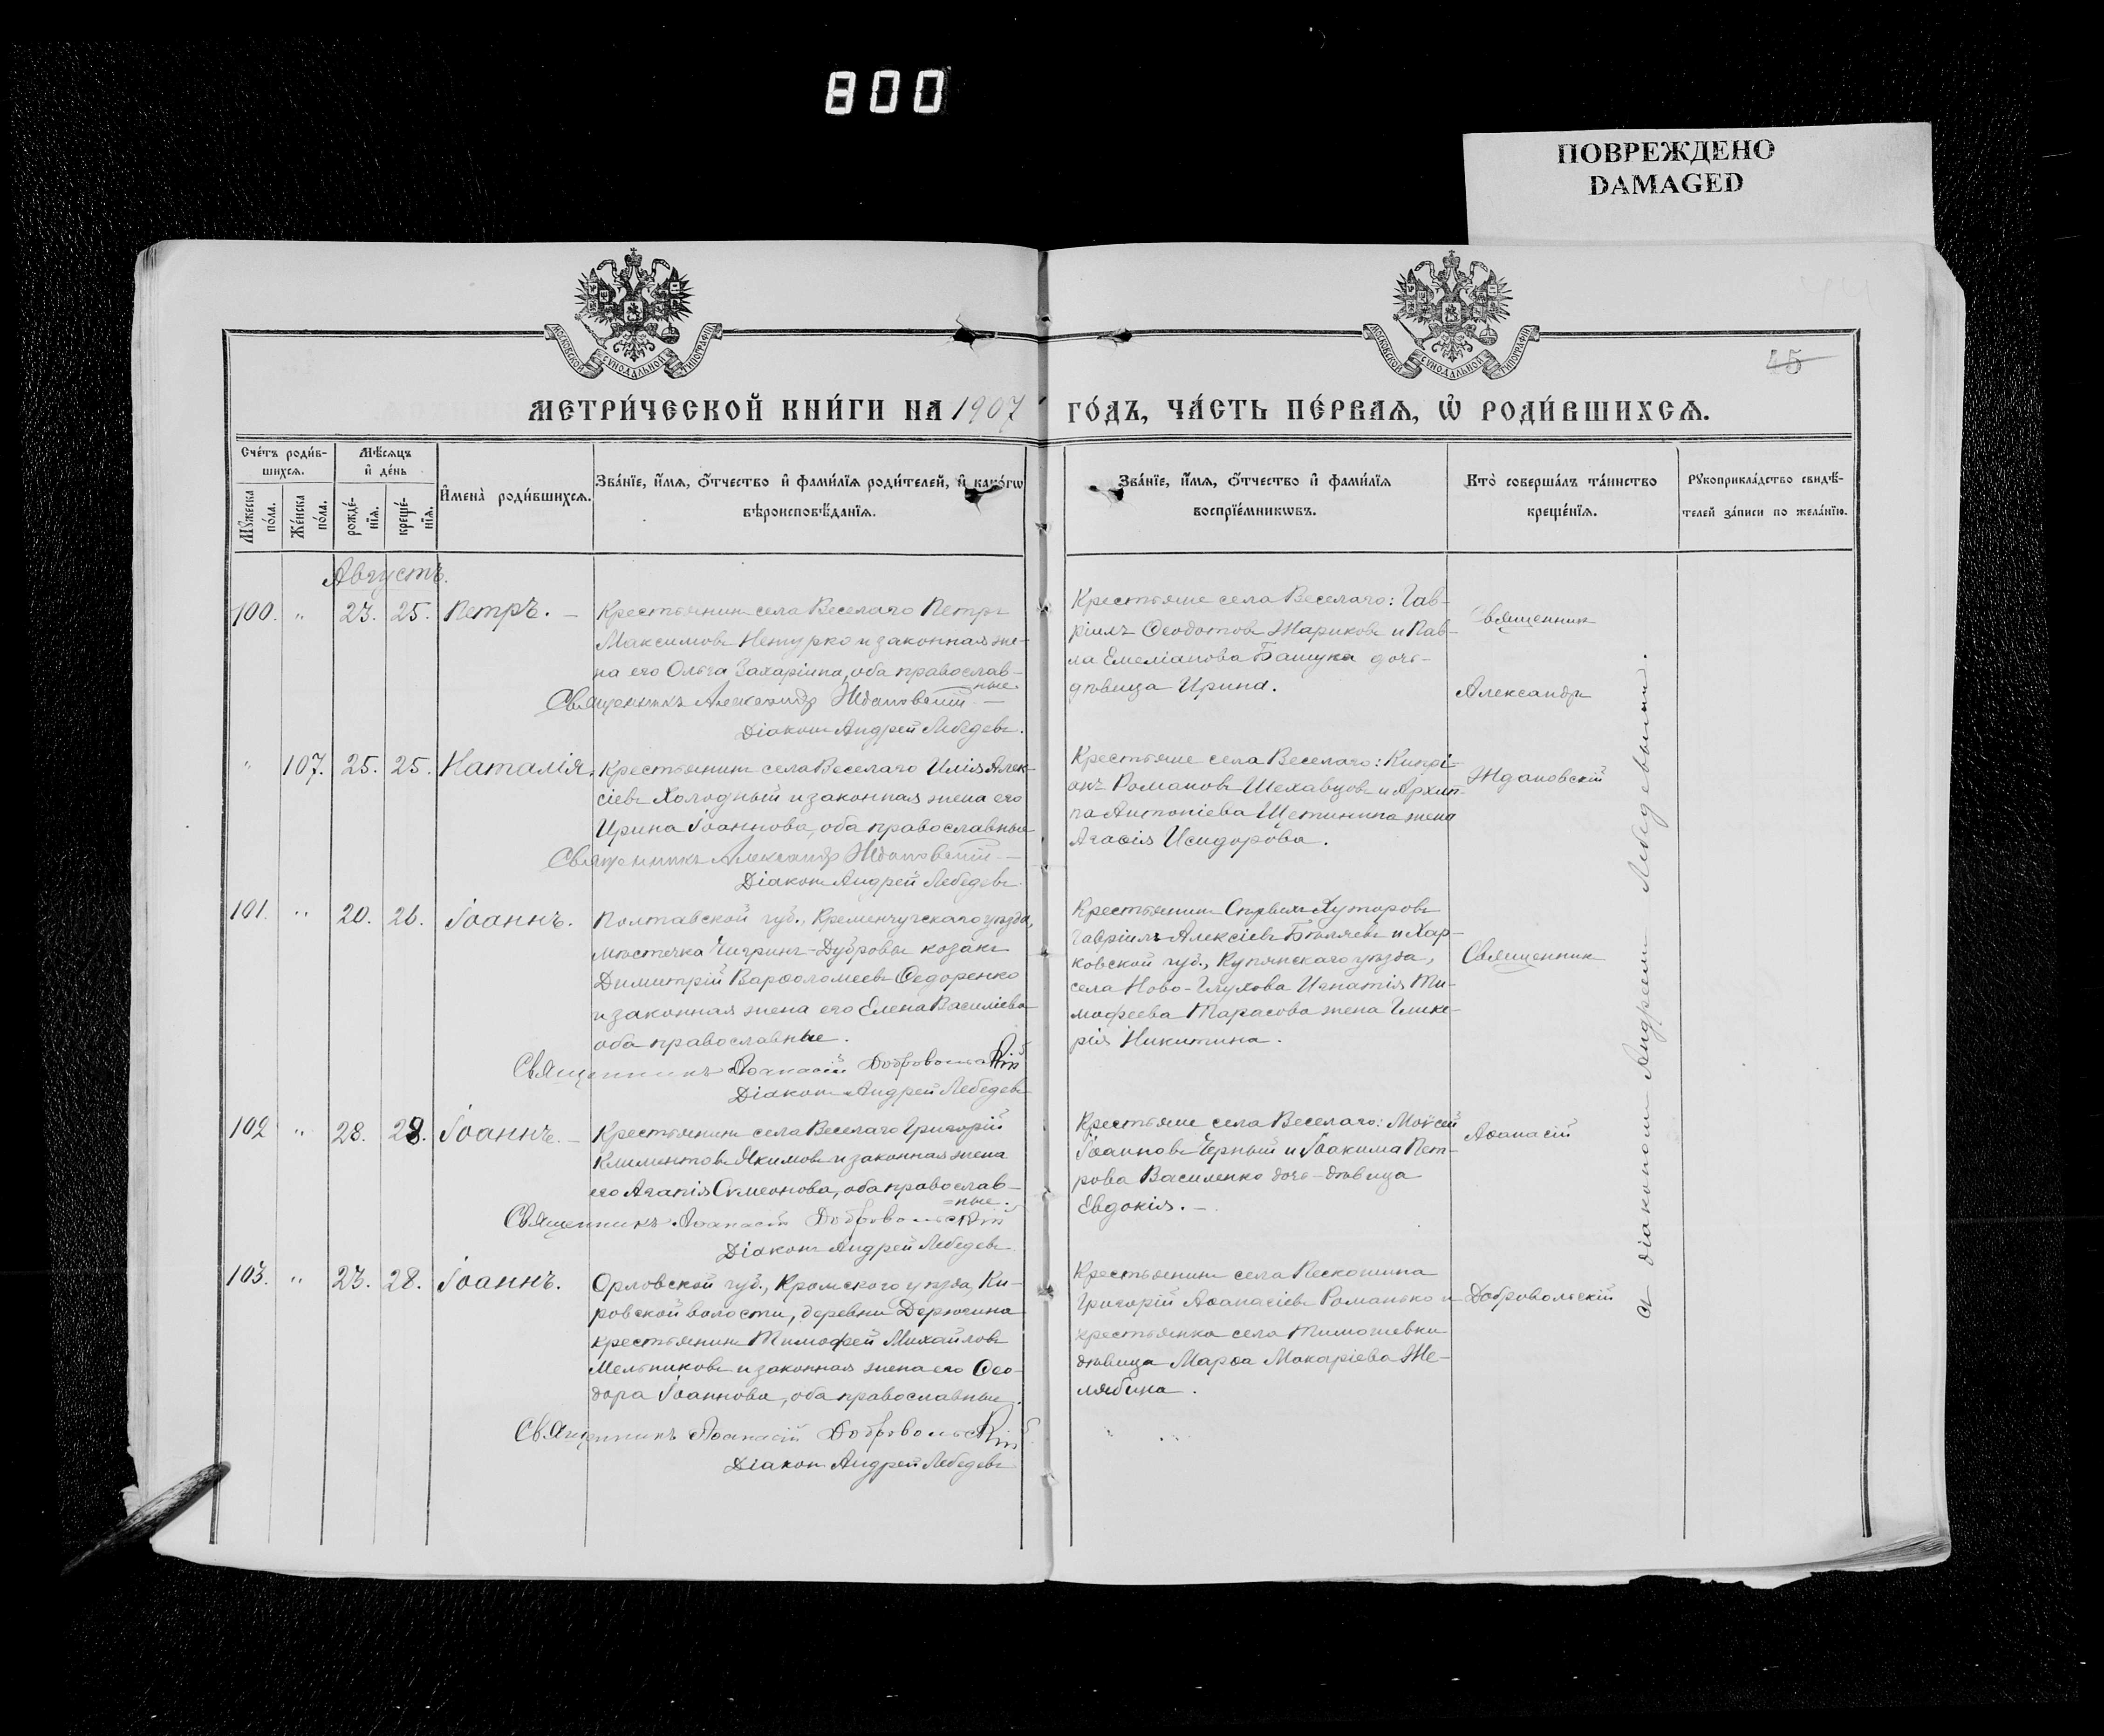 800
ПОВРЕЖДЕНО
DAMAGED
МОСКОВСКОЙ СѴНОДАЛЬНОЙ ТИПОГРАФІИ
МОСКОВСКОЙ СѴНОДАЛЬНОЙ ТИПОГРАФІИ
45
МЕТРИ́ЧЕСКОЙ КНИ́ГИ НА 1907 ГО́ДЪ, ЧА́СТЬ ПЕ́РВАѦ, Ѽ РОДИ́ВШИХСѦ.
Сче́тъ роди́в-
шихсѧ.
Мѣ́сѧцъ
и҆ де́нь
Мꙋ́жеска
по́ла.
Же́нска
по́ла.
рожде́-
нїѧ.
креще́-
нїѧ.
И҆мена̀ роди́вшихсѧ.
Зва́нїе, и҆́мѧ, ѻ҆́тчество и҆ фами́лїѧ роди́телей, и҆ како́гѡ
вѣроисповѣ́данїѧ.
Зва́нїе, и҆́мѧ, ѻ҆́тчество и҆ фами́лїѧ
воспрїе́мникѡвъ.
Кто̀ соверша́лъ та́инство
креще́нїѧ.
Рꙋкоприкла́дство свидѣ́-
телей за́писи по жела́нїю.
Августъ.
100. " 23. 25. Петръ. —
Крестьянинъ села Веселаго Петръ
Максимовъ Нетурко и законная же-
на его Ольга Захаріина, оба православ-
ные.
Священникъ Александр Ждановскій —
Діаконъ Андрей Лебедевъ.
Крестьяне села Веселаго: Гав-
ріилъ Ѳеодотовъ Жариковъ и Пав-
ла Емеліанова Башука дочь-
дѣвица Ирина.
Священникъ
Александръ
" 107. 25. 25. Наталія.
Крестьянинъ села Веселаго Илія Алек-
сіевъ Холодный и законная жена его
Ирина Іоаннова, оба православные
Священникъ Александр Ждановскій —
Діаконъ Андрей Лебедевъ.
Крестьяне села Веселаго: Кипрі-
анъ Романовъ Шехавцовъ и Архип-
па Антоніева Щетинина жена
Агаѳія Исидорова.
Ждановскій
101. " 20. 26. Іоаннъ.
Полтавской губ., Кременчугскаго уѣзда,
мѣстечка Чигринъ-Дубровы козакъ
Димитрій Варѳоломеевъ Ѳедоренко
и законная жена его Елена Василіева
оба православные.
Священникъ Аѳанасій Добровольскій
Діаконъ Андрей Лебедевъ
Крестьянинъ Хуторовъ
Гавріилъ Алексіевъ Бѣляевъ и Хар-
ковской губ., Купянскаго уѣзда,
села Ново-Глухова Игнатія Ти-
мофеева Тарасова жена Глике-
рія Никитина.
Священникъ
102 " 28. 28. Іоаннъ. —
Крестьянинъ села Веселаго Григорій
Климентовъ Якимовъ и законная жена
его Агапія Симеонова, оба православ-
=ные.
Священникъ Аѳанасій Добровольскій
Діаконъ Андрей Лебедевъ
Крестьяне села Веселаго: Моѵсей
Іоанновъ Черный и Іоакима Пет-
рова Василенко дочь-дѣвица
Евдокія. —
Аѳанасій
103. " 23. 28. Іоаннъ.
Орловской губ., Кромского уѣзда, Ки-
ровской волости, деревни Дерюгина
крестьянинъ Тимофей Михайловъ
Мельниковъ и законная жена его Ѳео-
дора Іоаннова, оба православные.
Священникъ Аѳанасій Добровольскій
Діаконъ Андрей Лебедевъ
Крестьянинъ села Пескошина
Григорій Аѳанасіевъ Романько и
крестьянка села Тимошевки
дѣвица Марѳа Макаріева Же-
лябина.
Добровольскій
съ діакономъ Андреемъ Лебедевымъ.